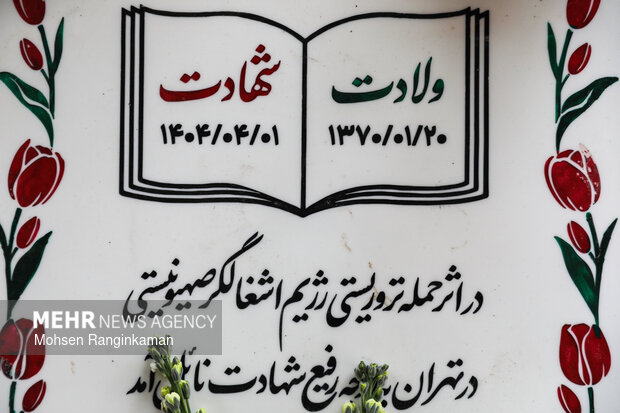 ولادت شهادت
۱۳۷۰/۰۱/۲۰ ۱۴۰۴/۰۴/۰۱
در اثر حمله تروریستی رژیم اشغالگر صهیونیستی
در تهران به رفیع شهادت نائل آمد
MEHR NEWS AGENCY
Mohsen Ranginkaman